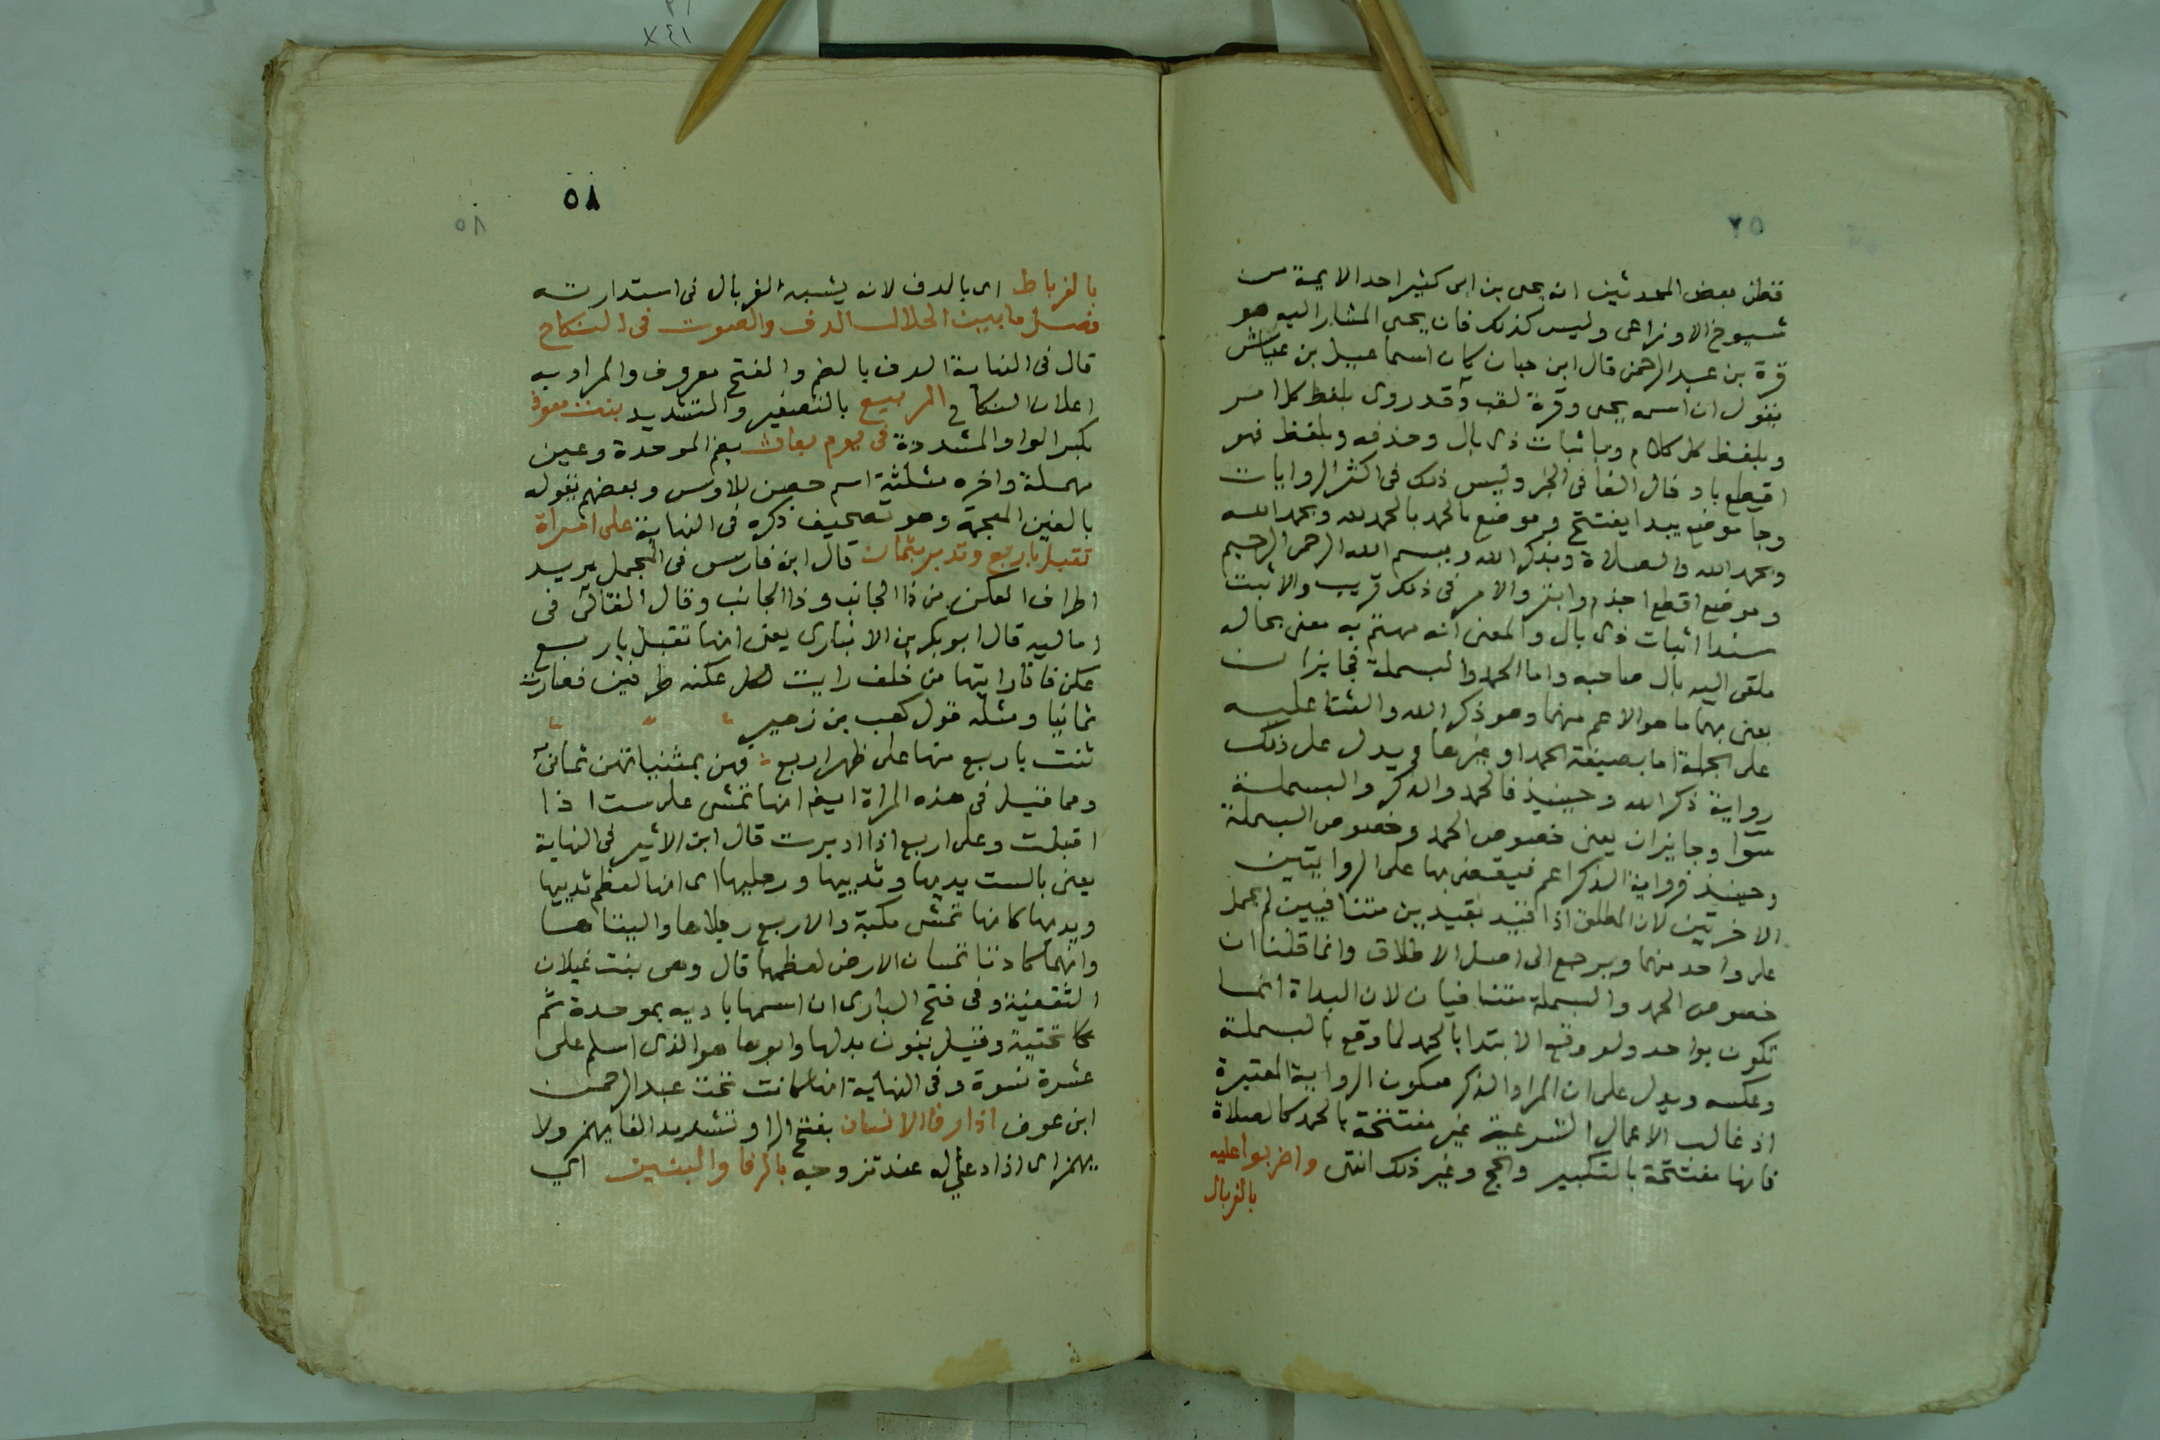 فظن بعض المحدثين انه يحيى بن ابى كثير احد الايمة من
شيوخ الاوزاعى وليس كذلك فان يحيى المشار اليه هو
قرة بن عبد الرحمن قال ابن حبان كان اسماعيل بن عياش
يقول ان اسمه يحيى وقرة لقب وقد روى بلفظ كل امر
وبلفظ كل كلام وباثبات ذى بال وحذفه وبلفظ فهو
اقطع بادخال الفا فى الخبر وليس ذلك فى اكثر الروايات
وجا موضع يبدا يفتتح وموضع بالحمد بالحمد لله وبحمد الله
وبحمد الله والصلاة وبذكر الله وببسم الله الرحمن الرحيم
وموضع اقطع اجذم وابتر والامر فى ذلك قريب والاثبت
سندا اثبات ذى بال والمعنى انه مهتم به معنى بحاله
ملقى اليه بال صاحبه واما الحمد والبسملة فجايز ان
يعنى بهما ما هو الاعم منهما وهو ذكر الله والثنا عليه
على الجملة اما بصيغة الحمد او غيرها ويدل على ذلك
رواية ذكر الله وحينيذ فالحمد والذكر والبسملة
سوا وجايز ان يعنى خصوص الحمد وخصوص البسملة
وحينيذ فرواية الذكر اعم فيقضى بها على الروايتين
الاخرتين لان المطلق اذا قيد بقيدين متنافيين لم يحمل
على واحد منهما ويرجع الى اصل الاطلاق وانما قلنا ان
خصوص الحمد والبسملة متنافيان لان البداة انما
تكون بواحد ولو وقع الابتدا بالحمد لما وقع بالبسملة
وعكسه ويدل على ان المراد الذكر فيكون الرواية المعتبرة
اذ غالب الاعمال الشرعية غير مفتتحة بالحمد كالصلاة
فانها مفتتحة بالتكبير والحج وغير ذلك انتهى واضربوا عليه
بالغربال
٥٨
٥٨
بالغرباط اى بالدف لانه يشبه الغربال فى استدارته
فصل ما بين الحلال الدف والصوت فى النكاح
قال فى النهاية الدف بالضم والفتح معروف والمراد به
اعلان النكاح الربيع بالتصغير والتشديد بنت معوذ
بكسر الواو المشددة فى يوم بعاث بضم الموحدة وعين
مهملة واخره مثلثة اسم حصن للاوس وبعضهم يقوله
بالغين المعجمة وهو تصحيف ذكره فى النهاية على امراة
تقبل باربع وتدبر بثمان قال ابن فارس فى المجمل يريد
اطراف العكن من ذا الجانب وذا الجانب وقال القالى فى
اماليه قال ابو بكر بن الانبارى يعنى انها تقبل باربع
عكن فاذا رايتها من خلف رايت لكل عكنه طرفين فصارت
ثمانيا ومثله قول كعب بن زهير
ثنت باربع منها على ظهر اربع فهن بمثنياتهن ثمان
ومما قيل فى هذه المراة ايضا انها تمشى على ست اذا
اقبلت وعلى اربع اذا ادبرت قال ابن الاثير فى النهاية
يعنى بالست يديها وثدييها ورجليها اى انها لعظم ثدييها
ويديها كانها تمشى مكبة والاربع رجلاها واليتاها
وانهما كادتا تمسان الارض لعظمهما قال وهى بنت غيلان
الثقفية وفى فتح البارى ان اسمها بادية بموحدة ثم
تحتية وقيل بنون بدلها وابوها هو الذى اسلم على
عشرة نسوة وفى النهاية انها كانت تحت عبد الرحمن
ابن عوف اذا رفا الانسان بفتح الرا وتشديد الفا يهمز ولا
يهمز اى اذا دعى له عند تزوجه بالرفا والبنين اى